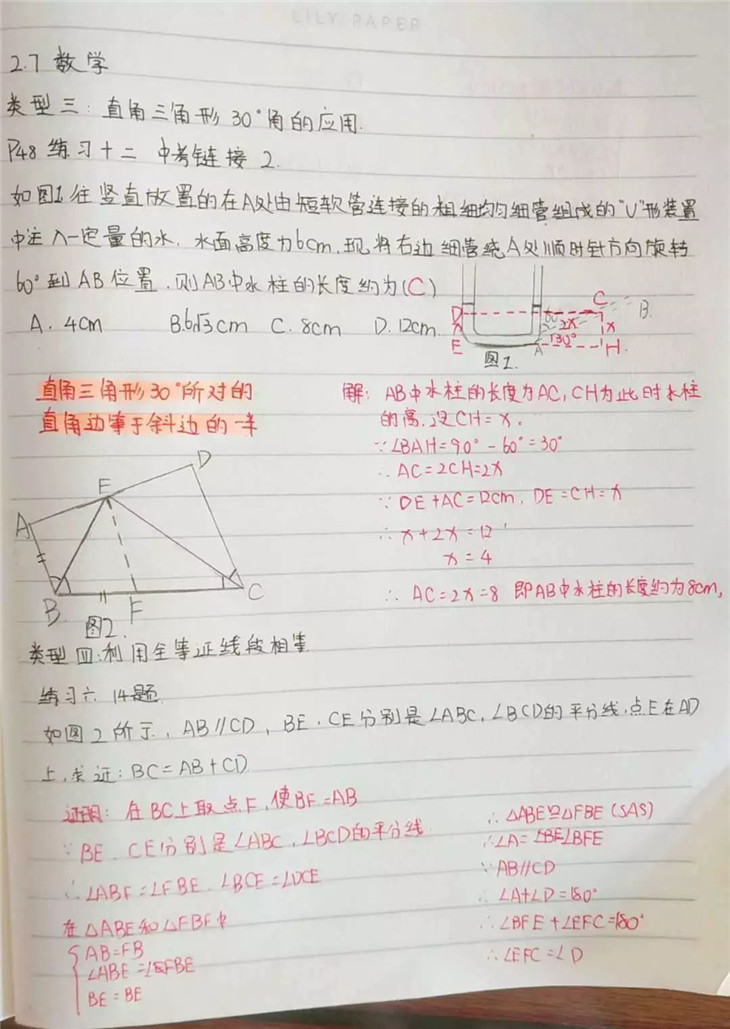 LILY PAPER
2.7 数学
类型三:直角三角形30°角的应用.
P48 练习十二 中考链接 2.
如图1,往竖直放置的在A处由短软管连接的粗细均匀细管组成的"U"形装置
中注入一定量的水,水面高度为6cm,现将右边细管绕A处顺时针方向旋转
60°到AB位置,则AB中水柱的长度约为(C)
A. 4cm B.6√3cm C. 8cm D. 12cm
D C B.
60° 2x x
E A 30° H
图1.
直角三角形30°所对的
直角边等于斜边的一半
解: AB中水柱的长度为AC, CH为此时水柱
的高,设CH=x.
∵∠BAH=90°-60°=30°
∴AC=2CH=2x
∵DE+AC=12cm, DE=CH=x
∴x+2x=12
x=4
∴AC=2x=8 即AB中水柱的长度约为8cm,
D
E
A
B F C
图2.
类型四:利用全等证线段相等
练习六 14题
如图2所示, AB//CD, BE、CE分别是∠ABC、∠BCD的平分线,点E在AD
上,求证:BC=AB+CD
证明: 在BC上取点F,使BF=AB
∵BE、CE分别是∠ABC、∠BCD的平分线
∴∠ABE=∠FBE、∠BCE=∠DCE
在△ABE和△FBE中
AB=FB
∠ABE=∠FBE
BE=BE
∴△ABE≌△FBE (SAS)
∴∠A=∠BFE
∵AB//CD
∴∠A+∠D=180°
∴∠BFE+∠EFC=180°
∴∠EFC=∠D